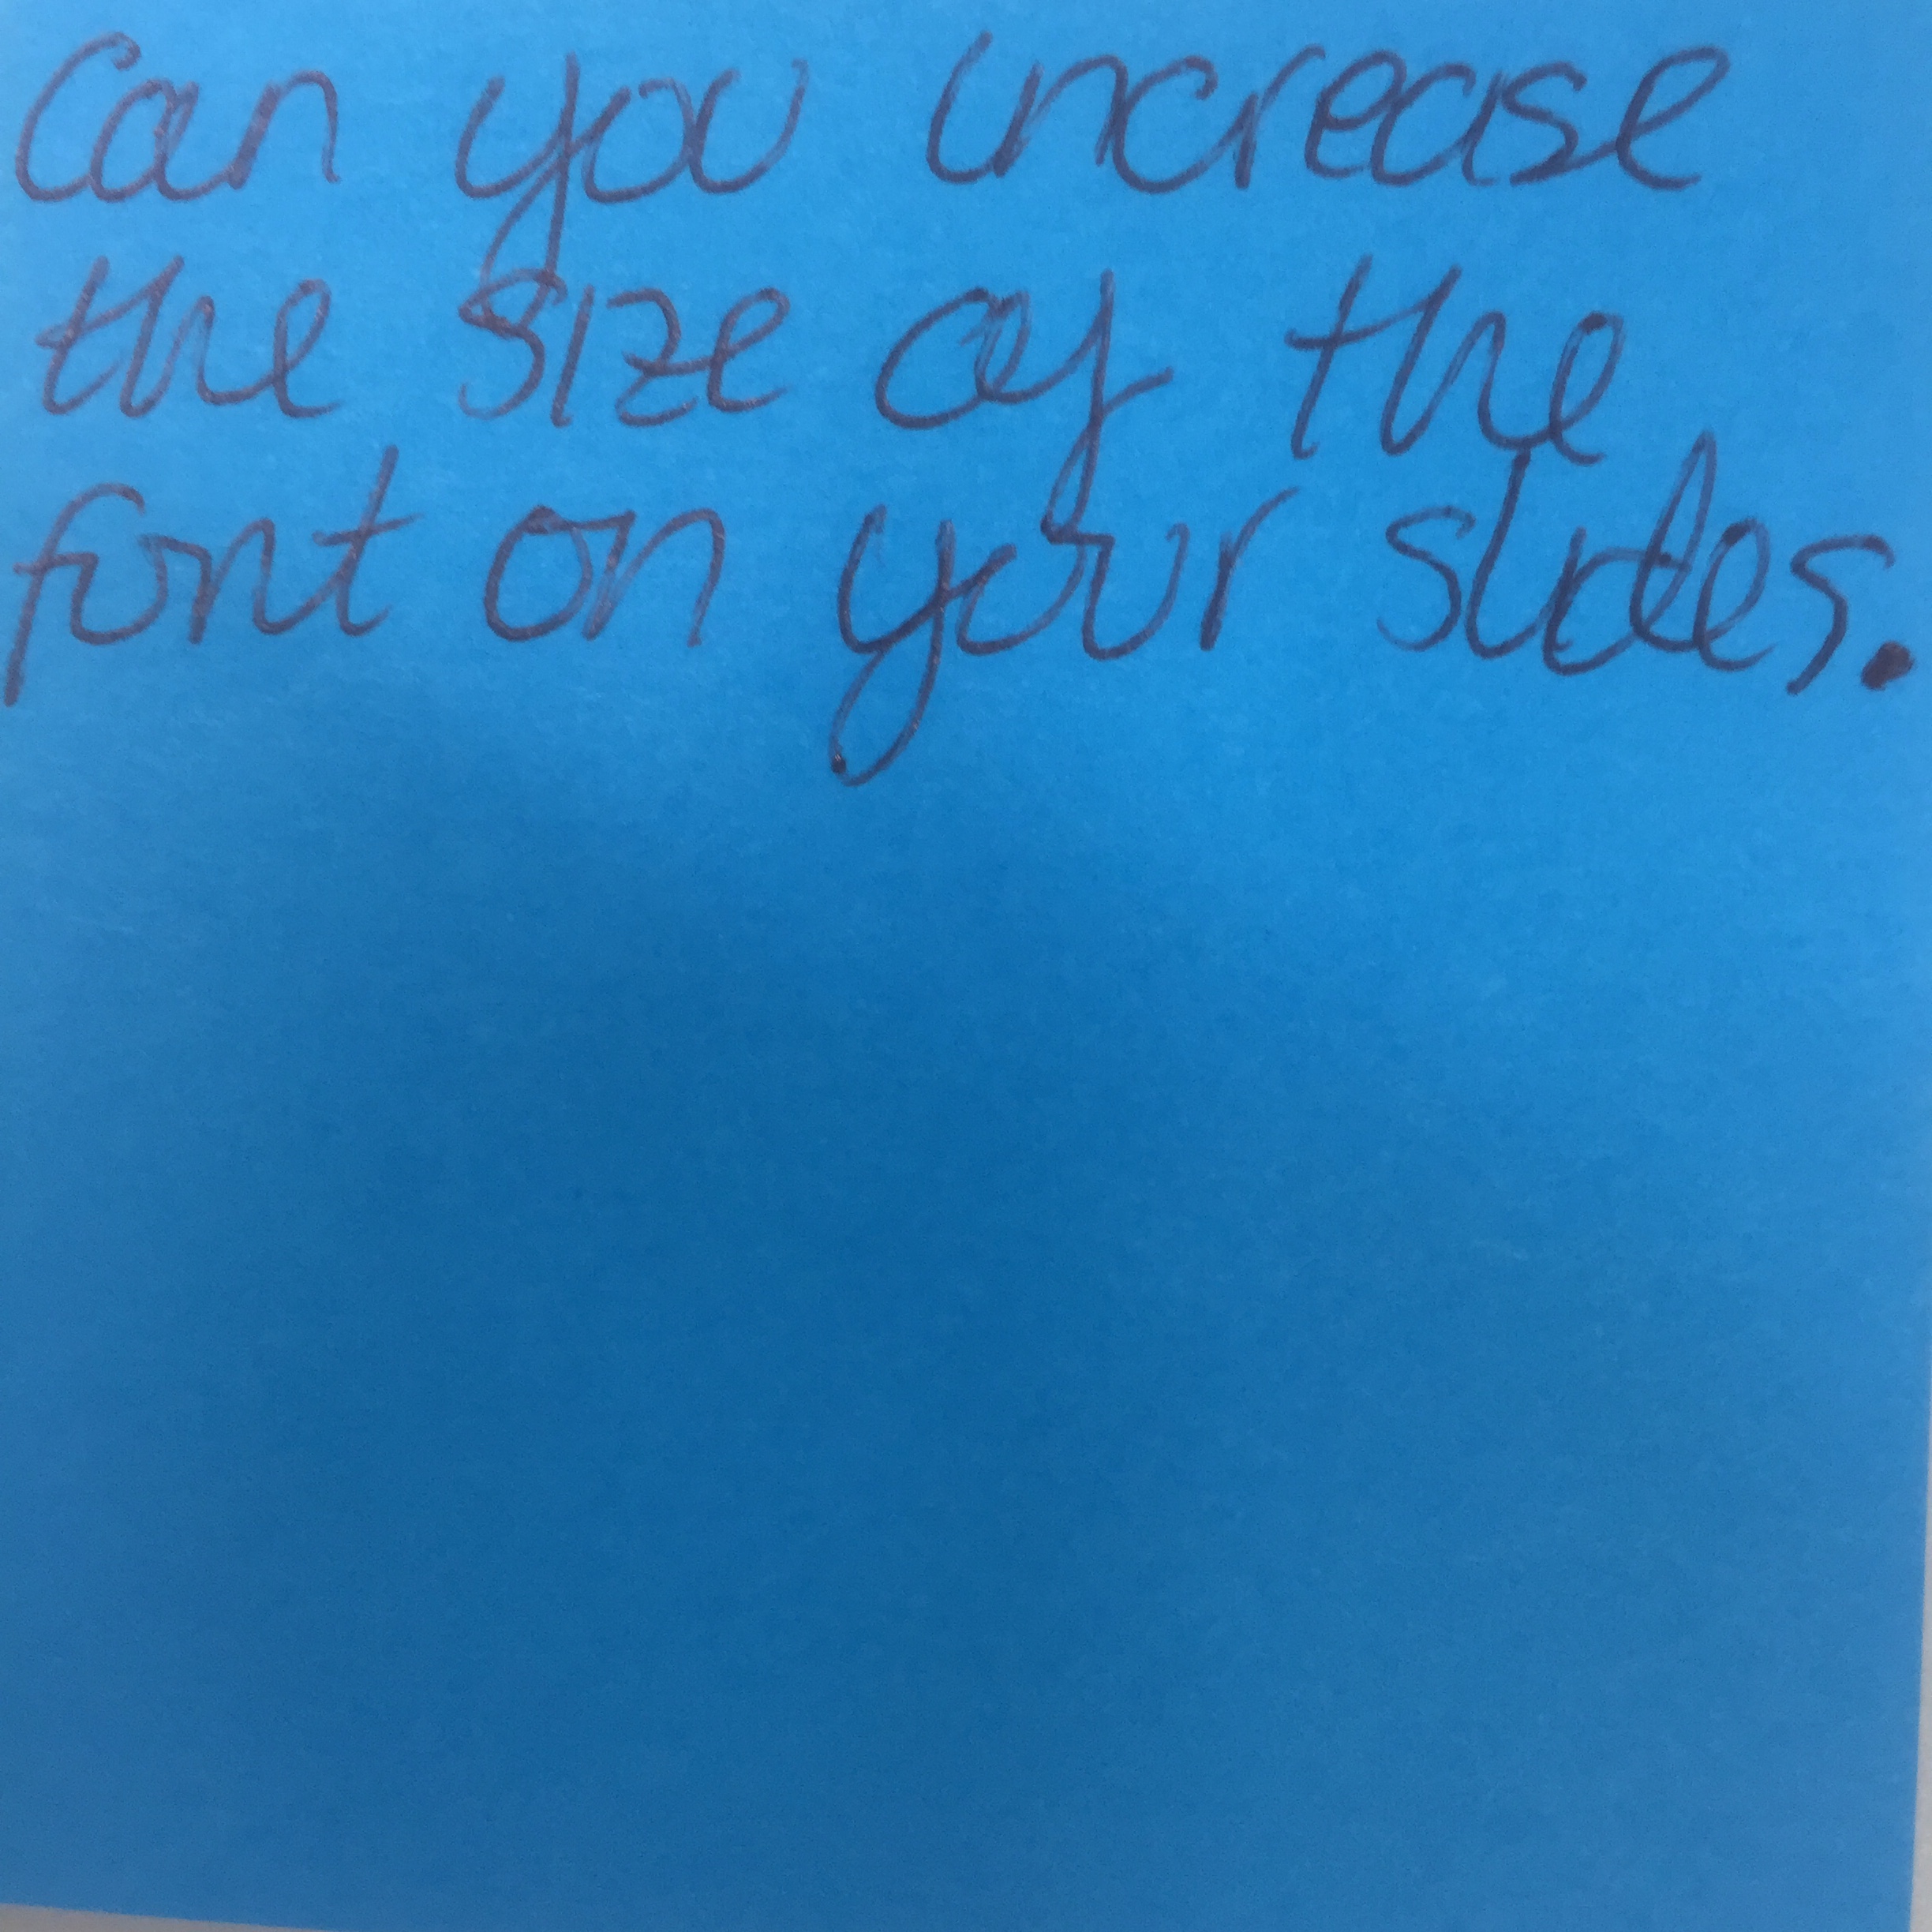 Can you increase
the size of the
font on your slides.